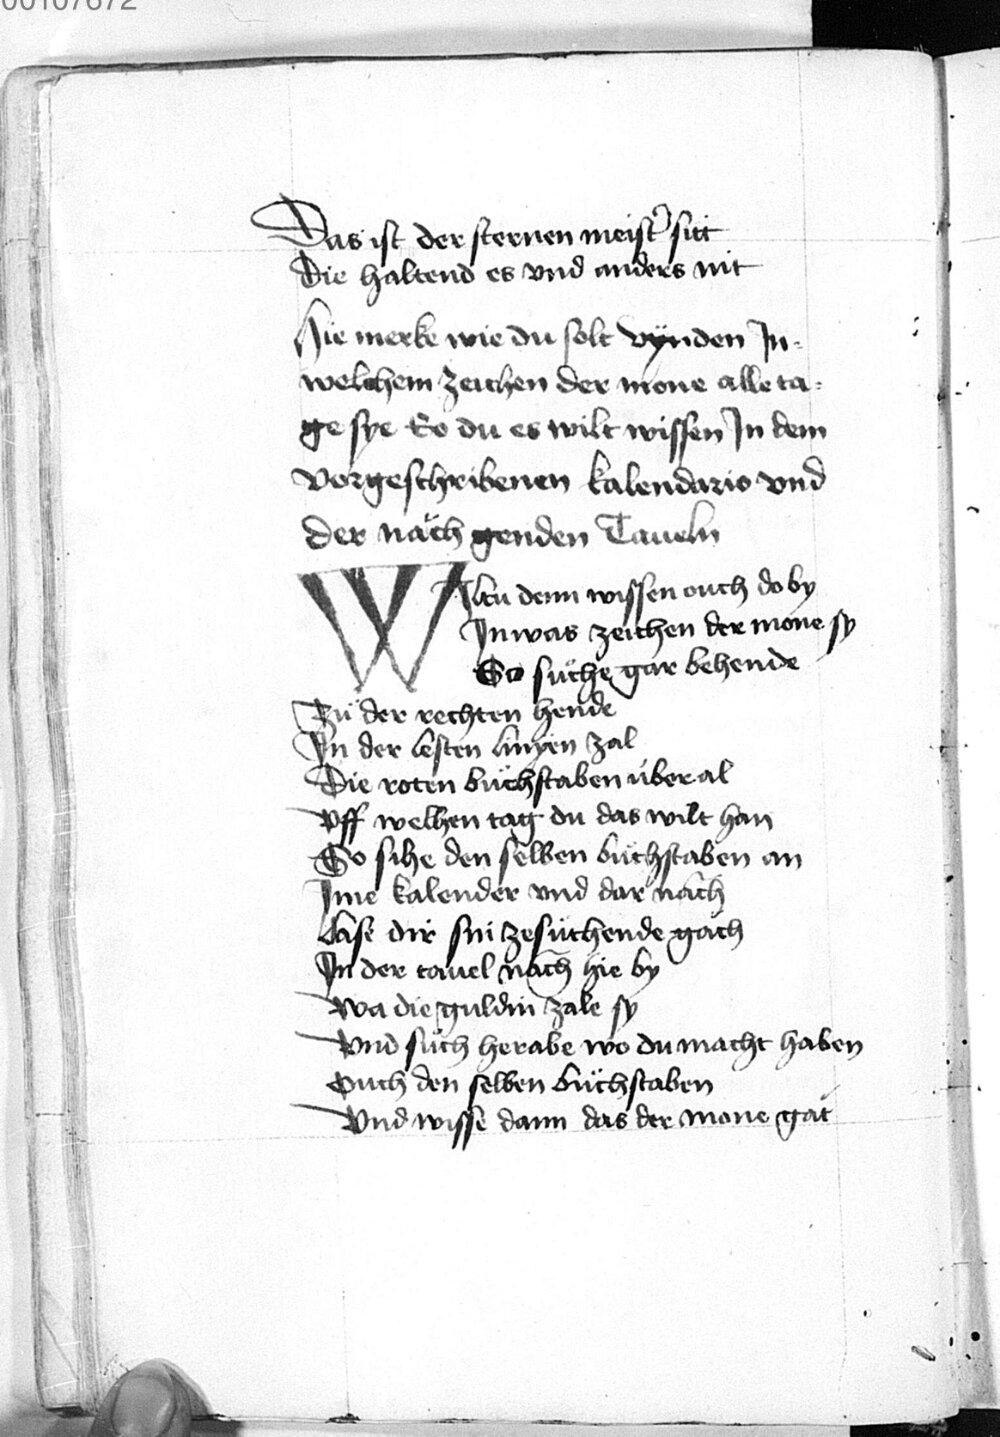 00107672
Das ist der sternen meist̾ sitt
Die haltend es vnd anders nit
Hie merke wie du solt vÿnden Jn-
welchem zeichen der mone alle ta-
ge sye So du es wilt wissen Jn dem
vorgeschribenen kalendario vnd
der nach genden Taueln
WIltu denn wissen ouch do by
Jn was zeichen der mone sy
So sůche gar behende
Zů der rechten hende
Jn der lesten linyen zal
Die roten bůchstaben über al
Vff welhen tag du das wilt han
So sihe den selben bůchstaben an
Jme kalender vnd dar nach
Lase dir sin zesůchende gäch
Jn der tauel näch hie by
Wa die guldin zale sy
Vnd sůch herabe wo du macht haben
Ouch den selben bůchstaben
Vnd wisse dann das der mone gät